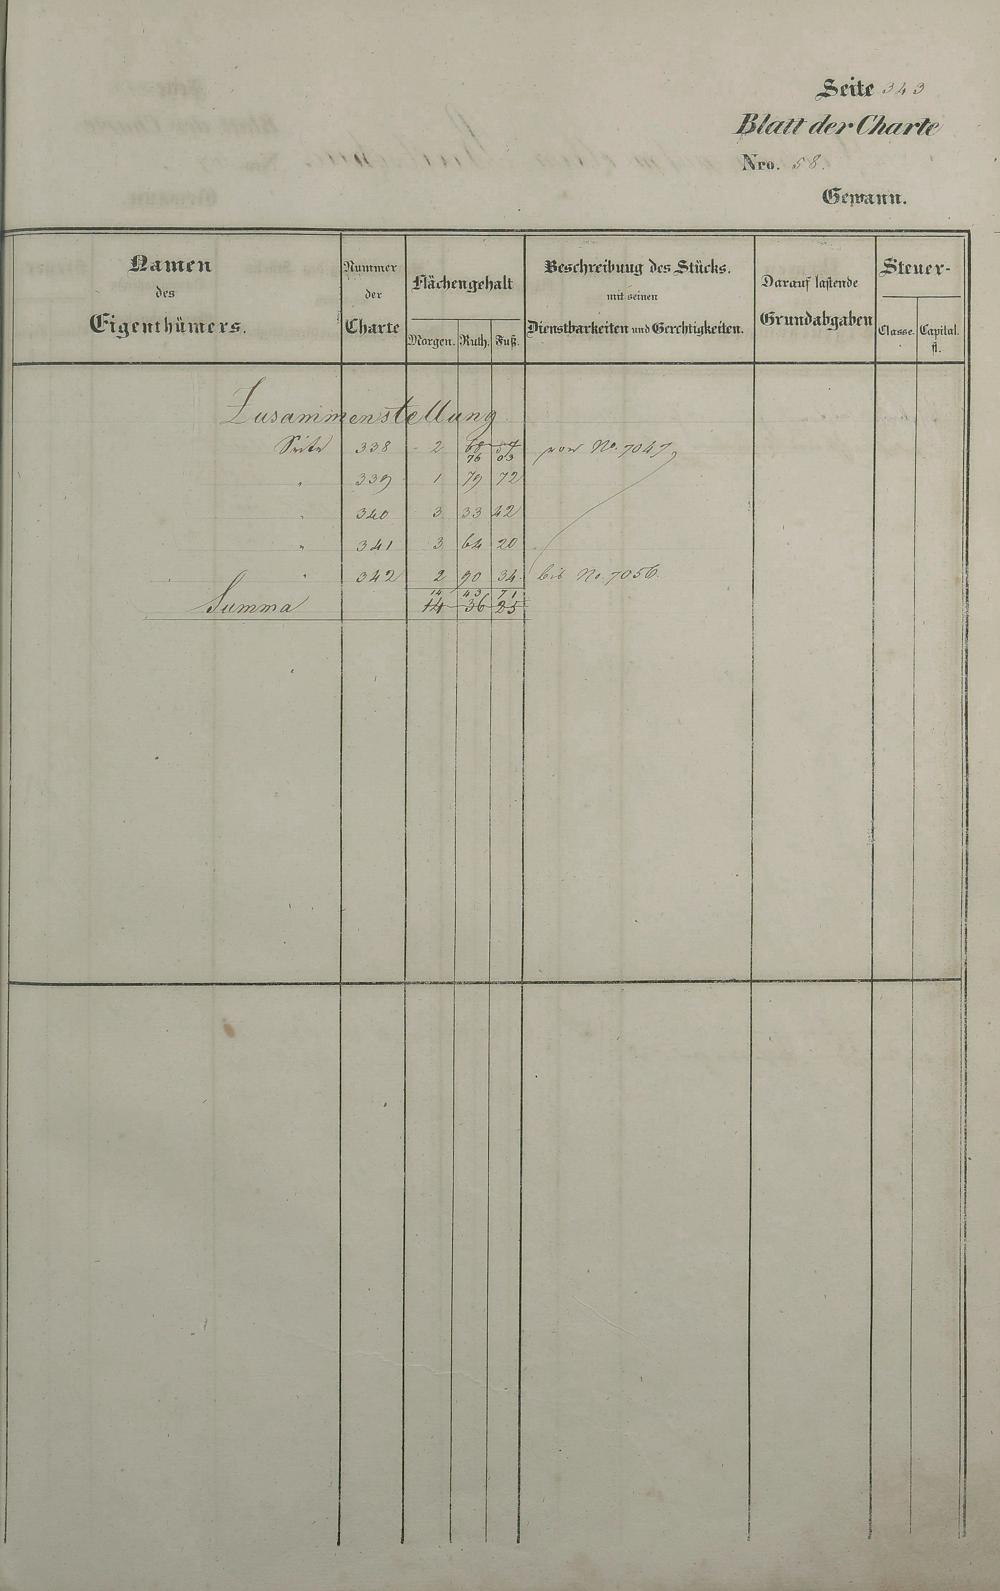 Seite 343
Blatt der Charte
Nro. 58.
Gewann.
Namen des Eigenthümers.
Nummer der Charte
Flächengehalt
Morgen. Ruth. Fuß.
Beschreibung des Stücks. mit seinen Dienstbarkeiten und Gerechtigkeiten.
Darauf lastende Grundabgaben
Steuer-
Classe. Capital. fl.
Zusammenstellung
Seite 338 2 68 54 von No. 7047,
76 03
" 339 1 79 72
" 340 3 33 42
" 341 3 64 20
" 342 2 90 34 bis No. 7056.
14 43 71
Summa 14 36 25